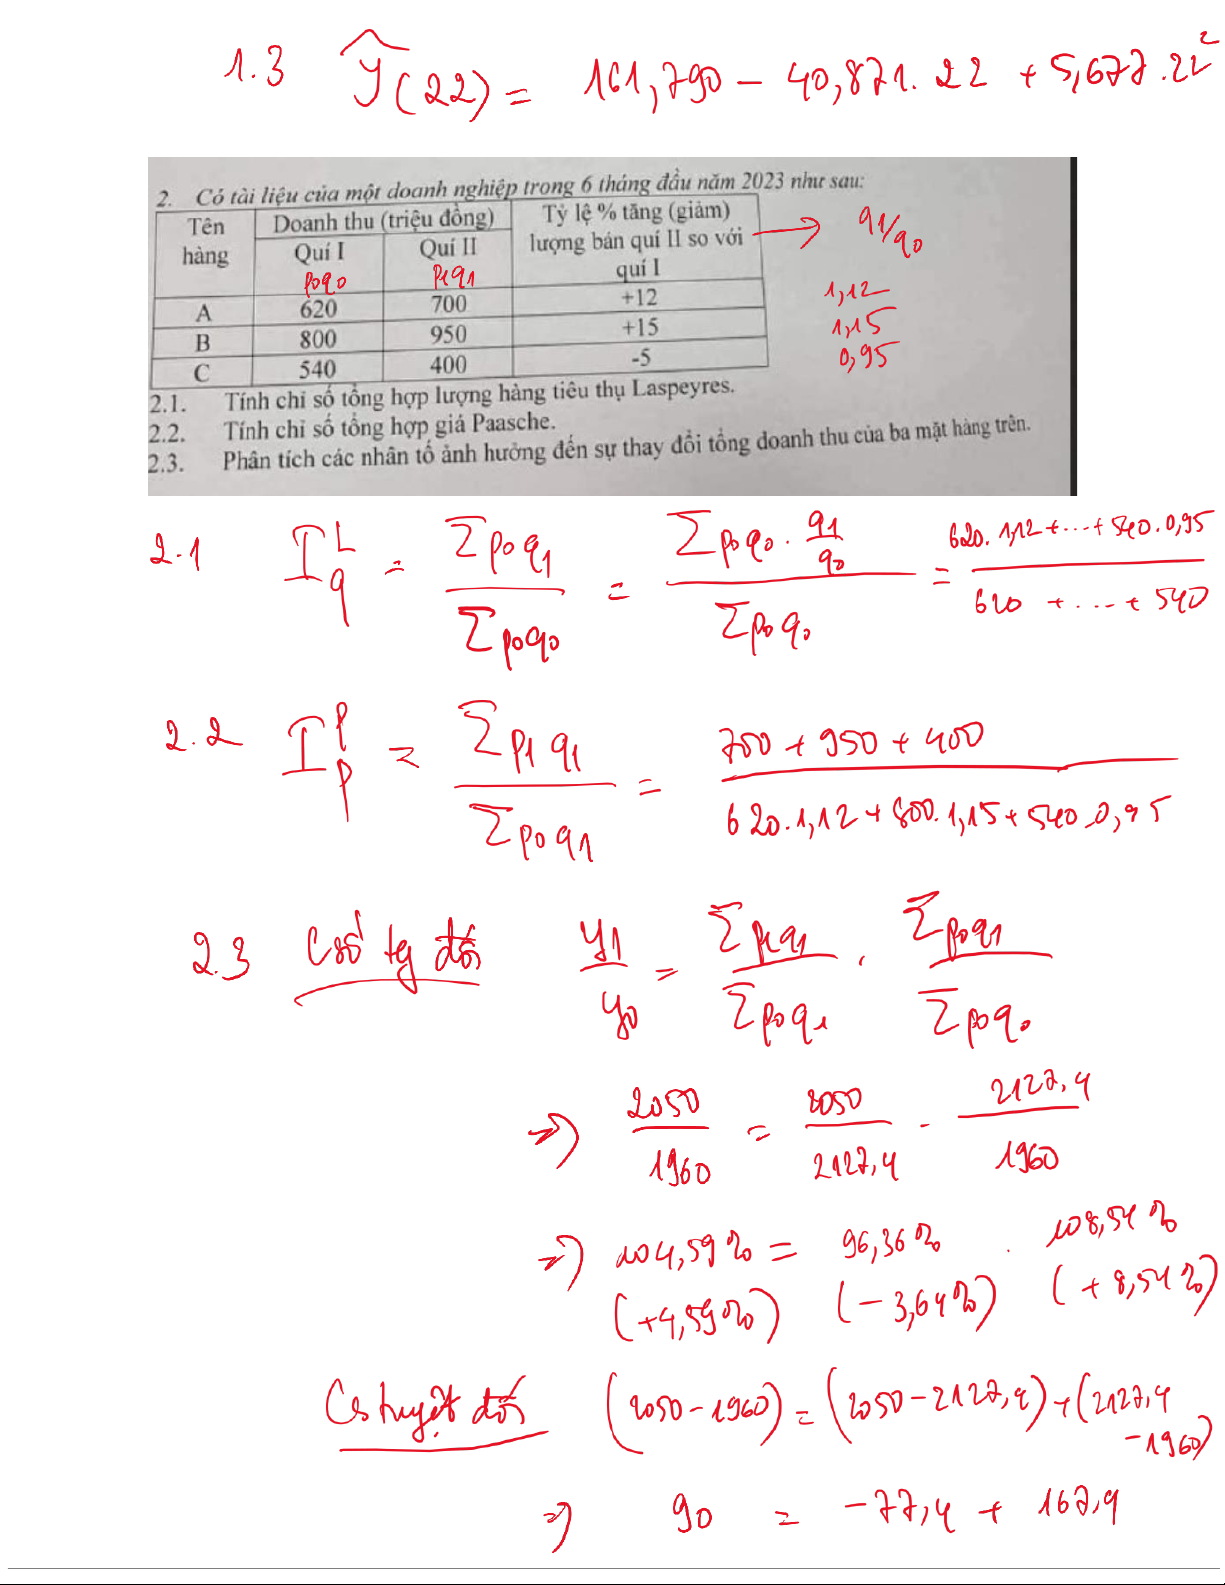 1.3 ŷ(22) = 161,790 - 40,871.22 + 5,677.22²
2. Có tài liệu của một doanh nghiệp trong 6 tháng đầu năm 2023 như sau:
Tên hàng Doanh thu (triệu đồng) Tỷ lệ % tăng (giảm) lượng bán quí II so với quí I → q1/q0
Quí I Quí II
p0q0 p1q1
A 620 700 +12 1,12
B 800 950 +15 1,15
C 540 400 -5 0,95
2.1. Tính chỉ số tổng hợp lượng hàng tiêu thụ Laspeyres.
2.2. Tính chỉ số tổng hợp giá Paasche.
2.3. Phân tích các nhân tố ảnh hưởng đến sự thay đổi tổng doanh thu của ba mặt hàng trên.
2.1 I_q^L = Σp0q1 / Σp0q0 = Σp0q0 . q1/q0 / Σp0q0 = 620.1,12 + ... + 540.0,95 / 620 + ... + 540
2.2 I_p^P = Σp1q1 / Σp0q1 = 700 + 950 + 400 / 620.1,12 + 800.1,15 + 540.0,95
2.3 Csố tg đối y1/y0 = Σp1q1 / Σp0q1 . Σp0q1 / Σp0q0
=> 2050/1960 = 2050/2127,4 . 2127,4/1960
=> 104,59% = 96,36% . 108,54%
(+4,59%) (-3,64%) (+8,54%)
Cs tuyệt đối (2050-1960) = (2050-2127,4) + (2127,4-1960)
=> 90 = -77,4 + 167,4